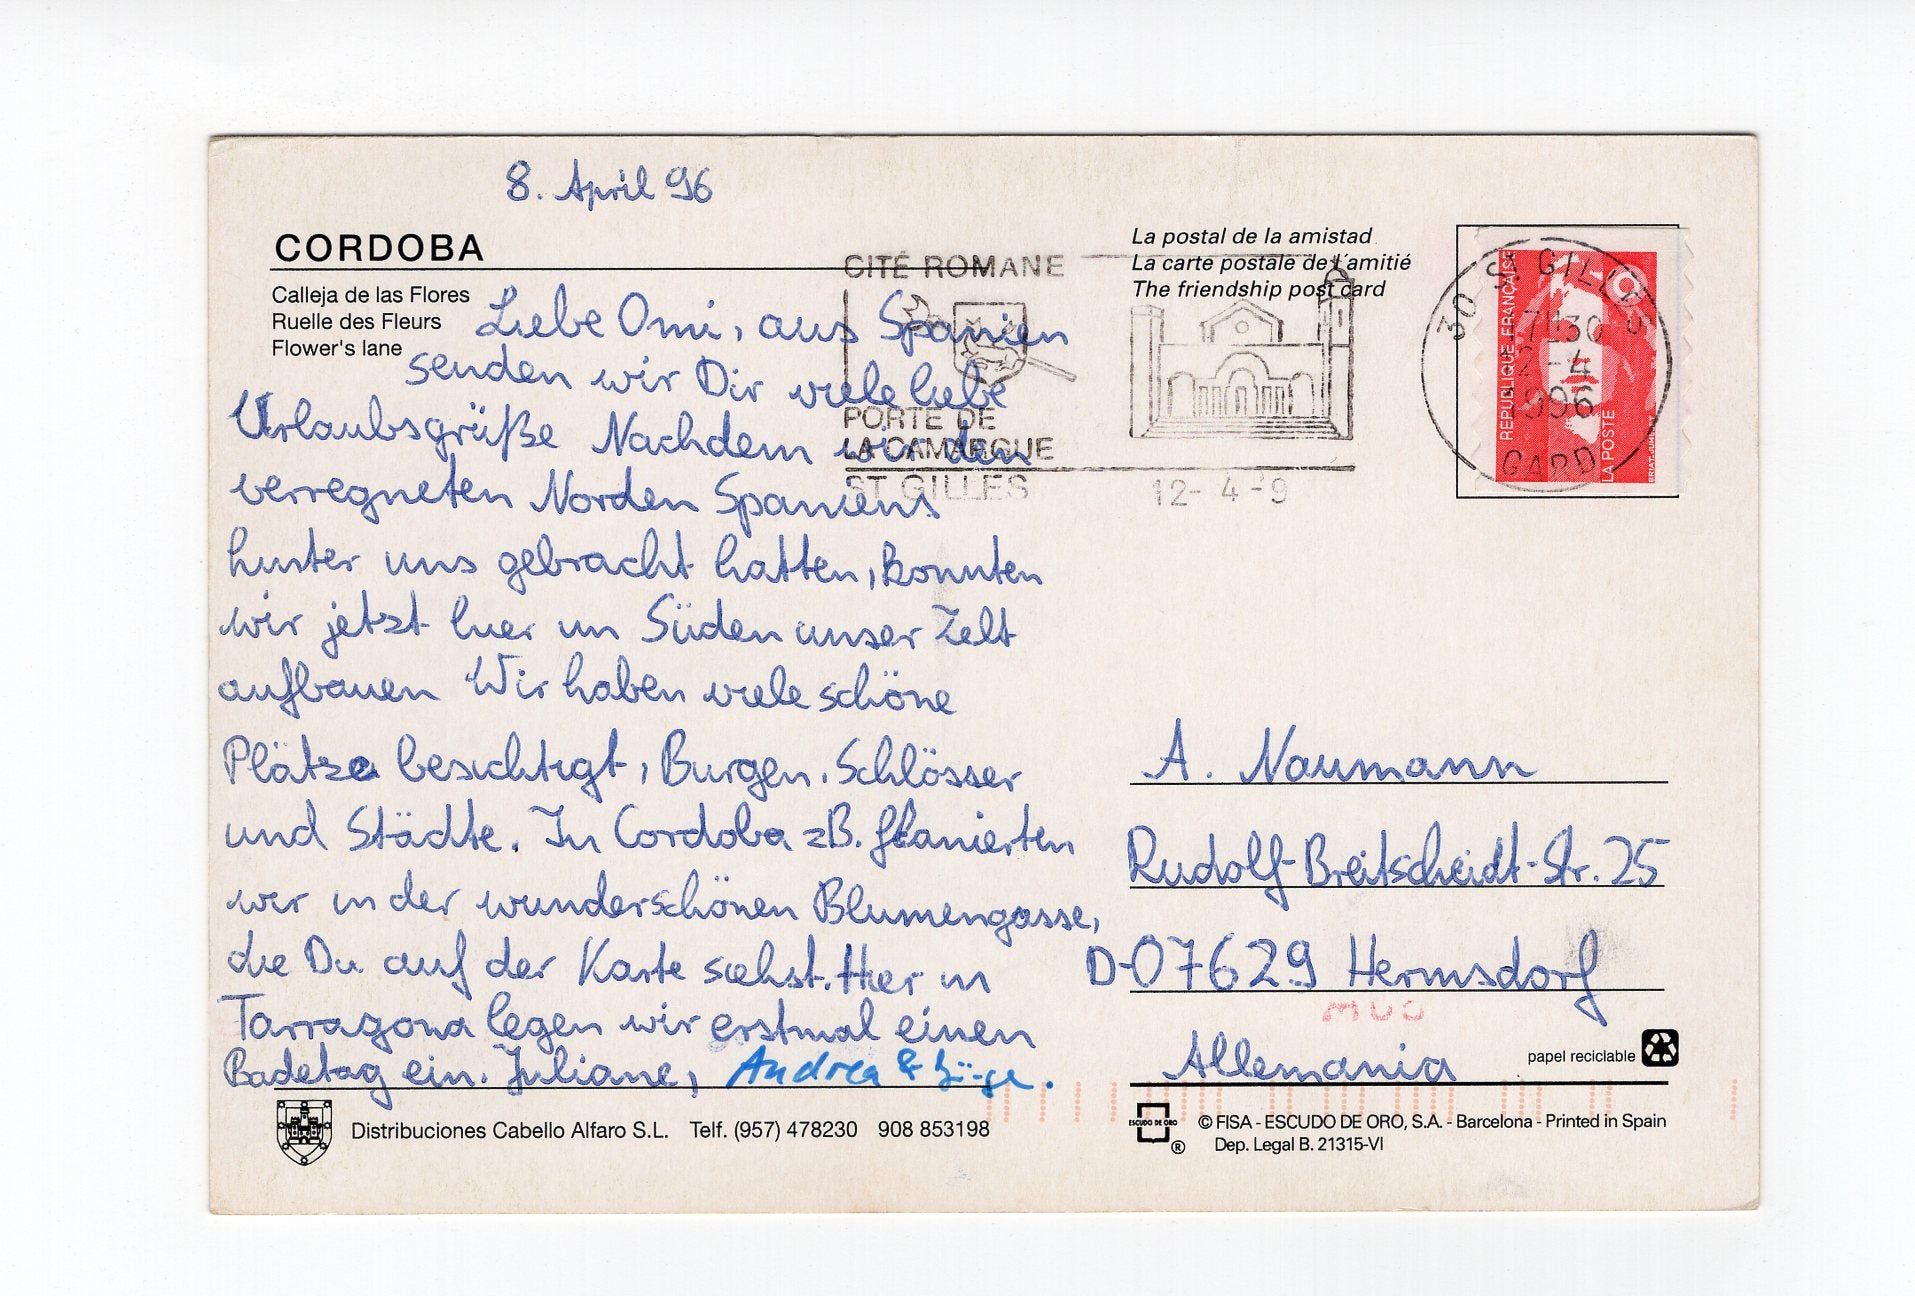 8. April 96
CORDOBA
Calleja de las Flores
Ruelle des Fleurs
Flower's lane
Liebe Omi, aus Spanien
senden wir Dir viele liebe
Urlaubsgrüße Nachdem wir den
verregneten Norden Spaniens
hinter uns gebracht hatten, konnten
wir jetzt hier im Süden unser Zelt
aufbauen Wir haben viele schöne
Plätze besichtigt, Burgen, Schlösser
und Städte. In Cordoba zB. flanierten
wir in der wunderschönen Blumengasse,
die Du auf der Karte siehst. Hier in
Tarragona legen wir erstmal einen
Badetag ein. Juliane, Andrea &
Distribuciones Cabello Alfaro S.L. Telf. (957) 478230 908 853198
CITÉ ROMANE
PORTE DE
LA CAMARGUE
ST GILLES
12- 4 -9
La postal de la amistad
La carte postale de l'amitié
The friendship post card
30 ST GILLES
7H30
12-4
1996
GARD
REPUBLIQUE FRANÇAISE
LA POSTE
A. Naumann
Rudolf-Breitscheidt-Str. 25
D-07629 Hermsdorf
Allemania
papel reciclable
ESCUDO DE ORO
®
© FISA - ESCUDO DE ORO, S.A. - Barcelona - Printed in Spain
Dep. Legal B. 21315-VI